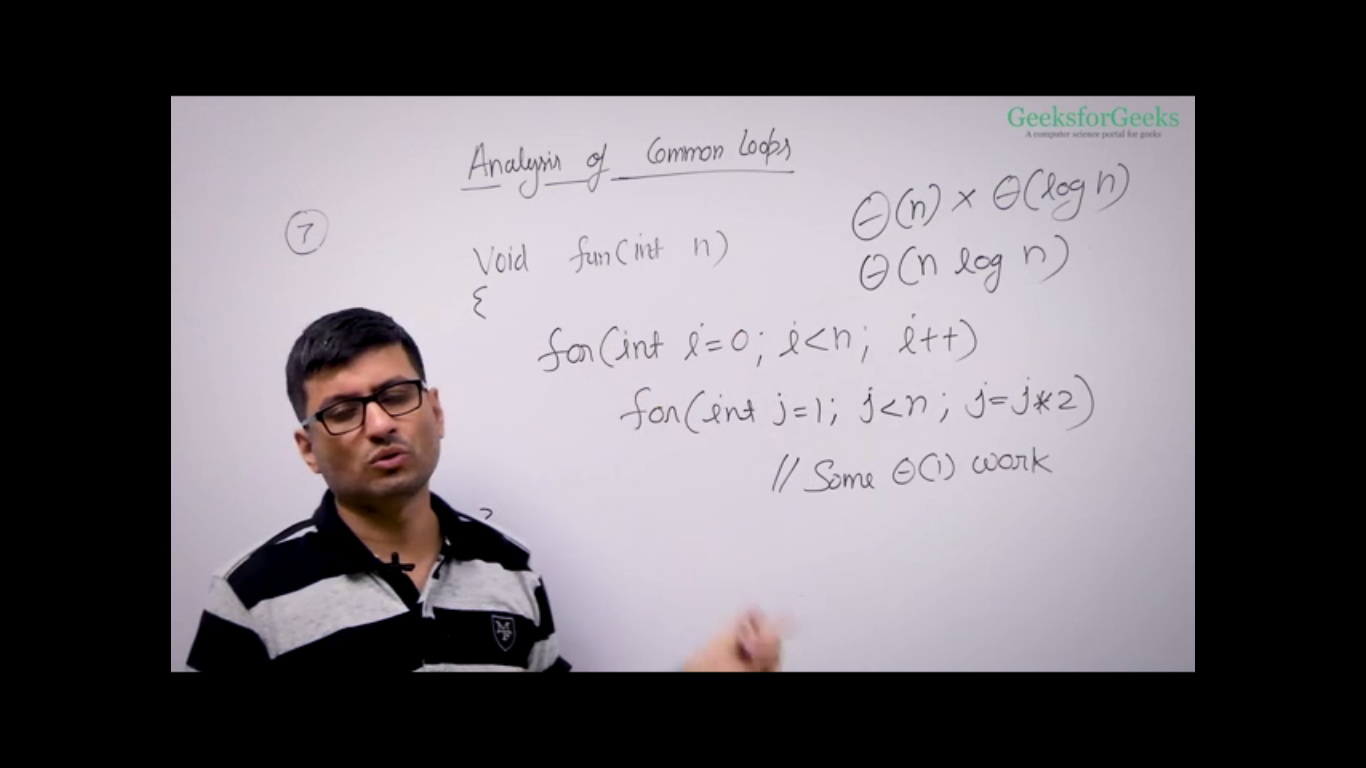 GeeksforGeeks
A computer science portal for geeks
Analysis of Common Loops
7
Θ(n) × Θ(log n)
Θ(n log n)
Void fun(int n)
{
for(int i=0; i<n; i++)
for(int j=1; j<n; j=j*2)
// Some Θ(1) work